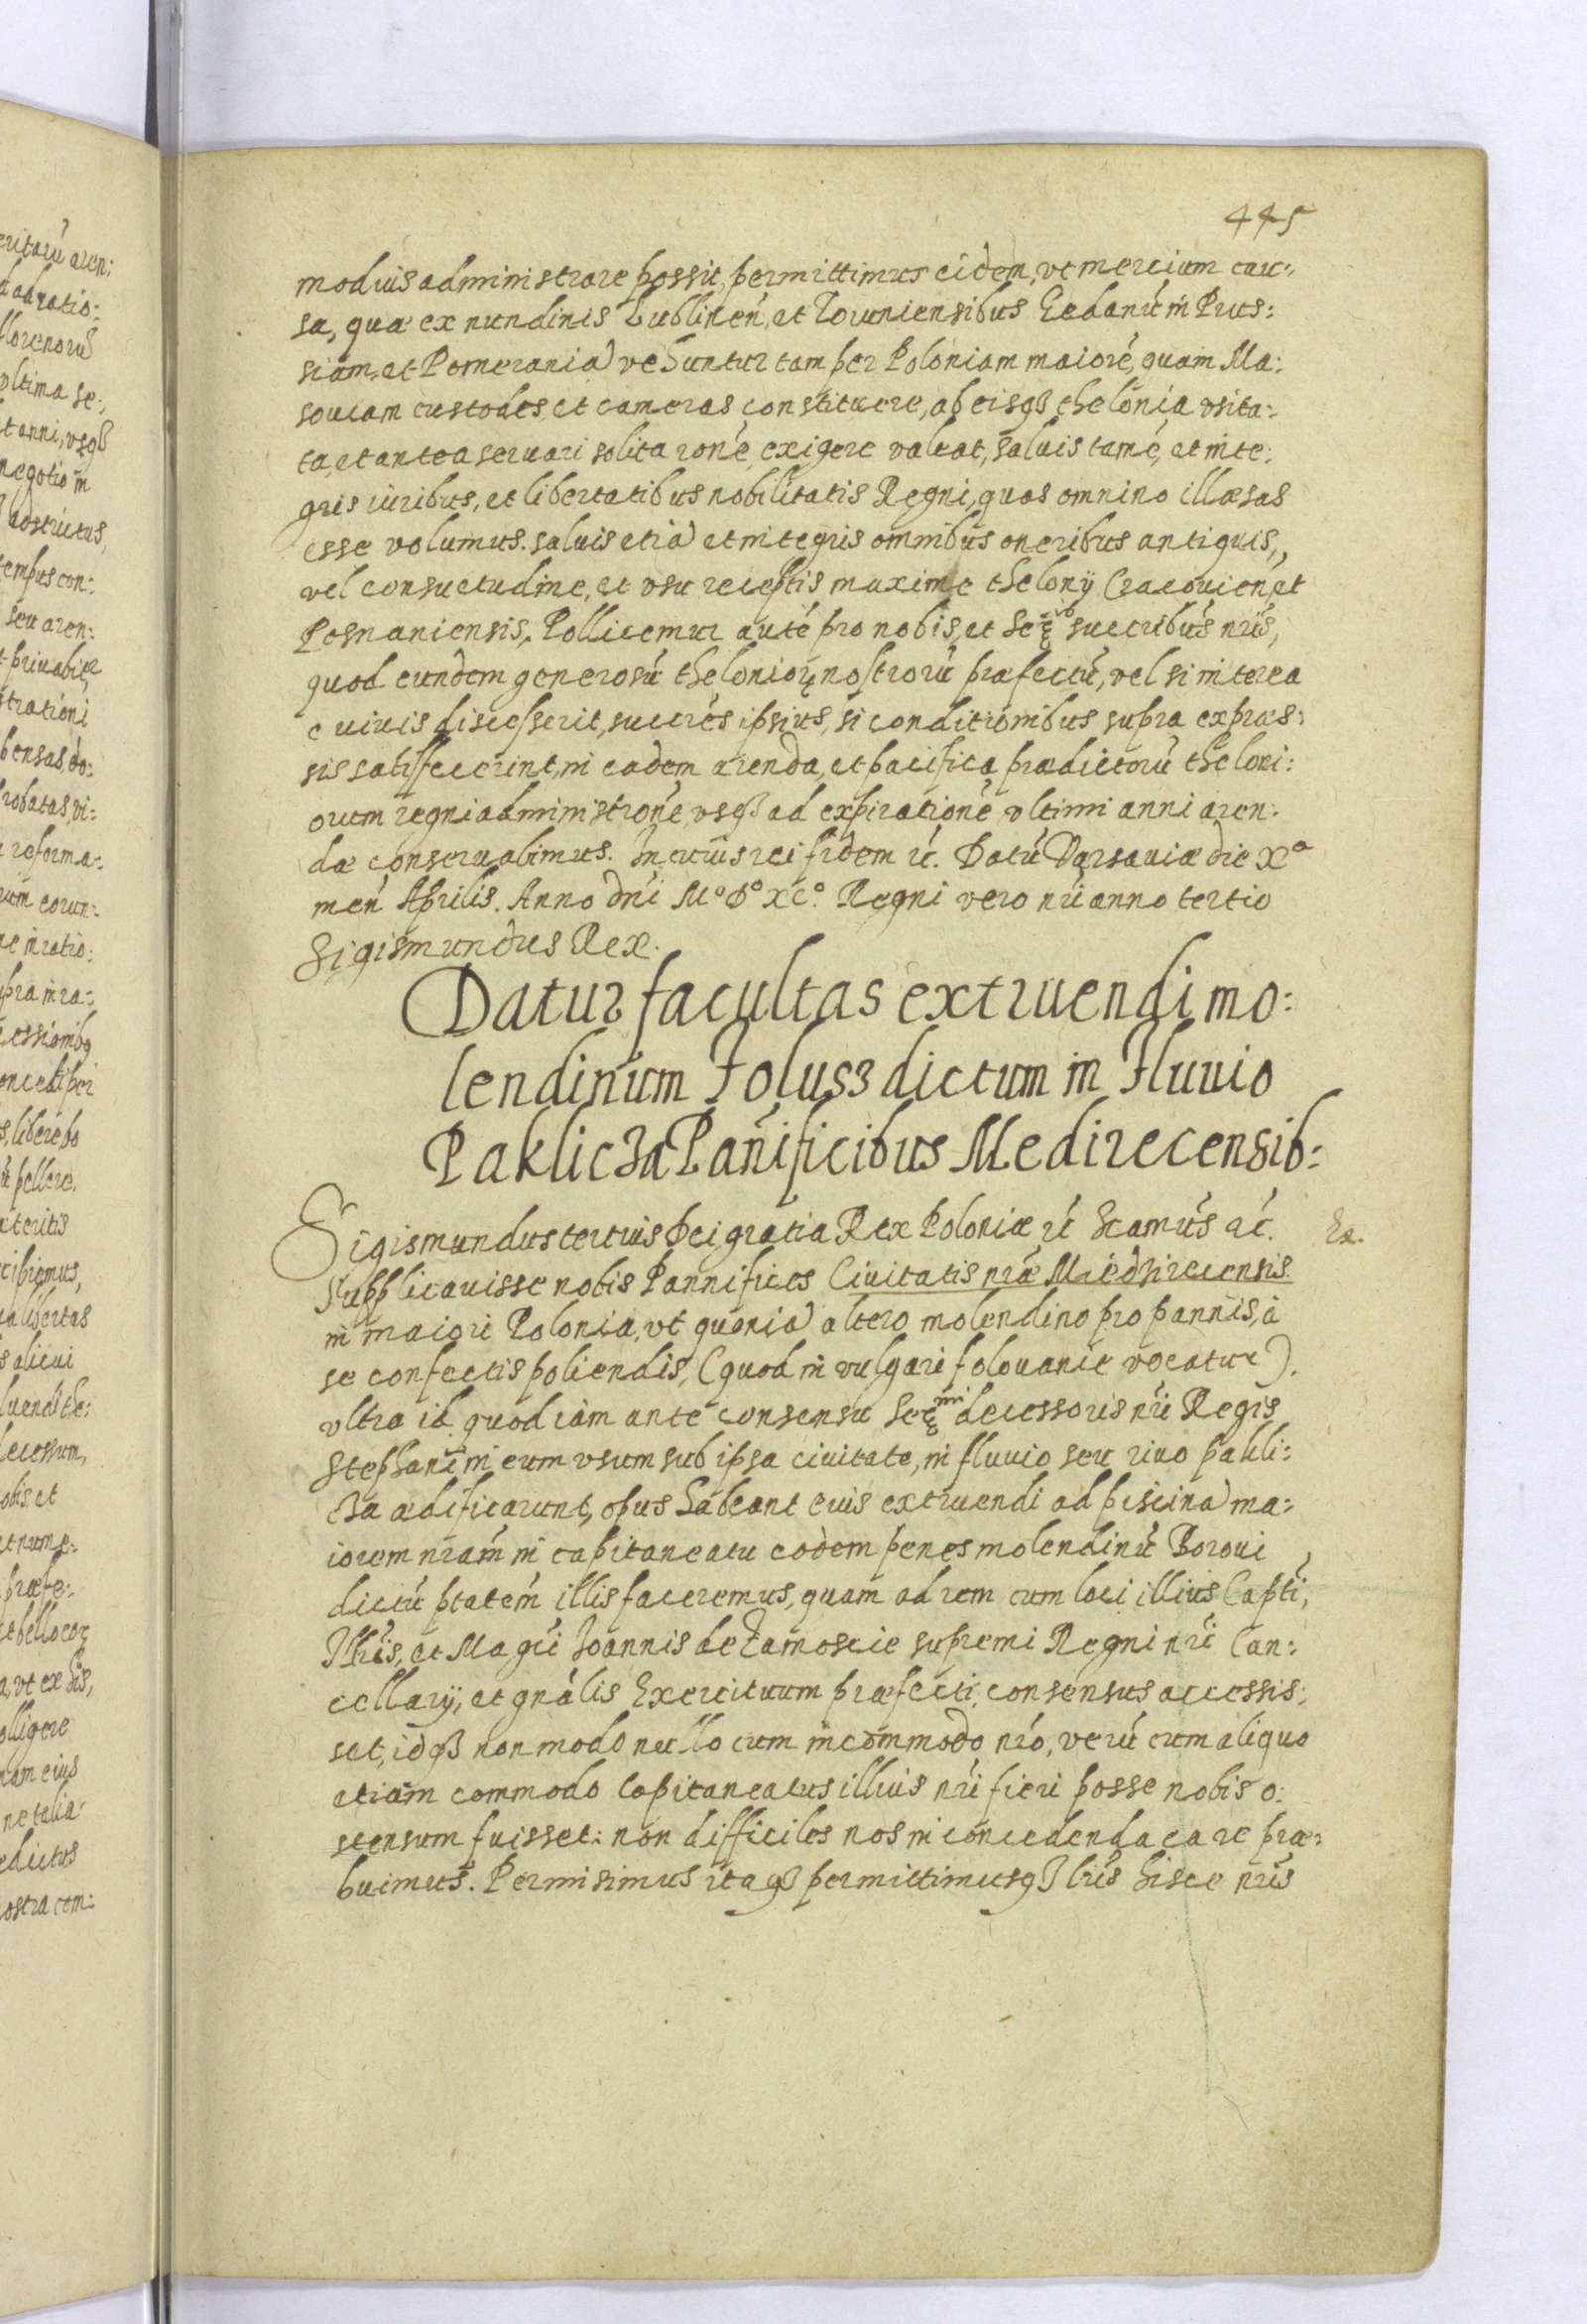 445
modius administrare possit, permittimus eidem, vt mercium cau:
sa, quæ ex nundinis Lublineń, et Toruniensibus Gedanū in Prus:
siam, et Pomeraniā vehuntur tam per Poloniam maiorē, quam Ma:
souiam custodes et cameras constituere, ab eisqȝ thelonia vsita:
ta, et antea seruari solita ronē exigere valeat, saluis tamē, et inte:
gris iuribus, et libertatibus nobilitatis Regni, quas omnino illæsas
esse volumus. saluis etiā et integris omnibus oneribus antiquis,
vel consuetudine, et vsu receptis maxime thelonij Cracovień et
Posnaniensis. Pollicemur autē pro nobis, et Serib succribus nris,
quod eundem generosū theloniorꝝ nostrorū præfectū, vel si interea
e viuis discesserit, succrēs ipsius, si conditionibus supra expræs:
sis satisfecerint, in eadem arenda, et pacifica prædictorū theloni:
orum regni administronē vsqȝ ad expirationē vltimi anni aren:
dæ conseruabimus. In cuius rei fidem ꝛc. Datū Varsaviæ die Xa
meń Aprilis. Anno dni Mo Do XCo. Regni vero nri anno tertio
Sigismundus Rex.
Datur facultas extruendi mo:
lendinum Folusz dictum in Fluuio
Paklicza Panificibus Medirecensib:
Sigismundus tertius Dei gratia Rex Poloniæ ꝛc Scamus ꝛc.
Supplicauisse nobis Pannifices Ciuitatis nræ Miedzirecensis
in maiori Polonia, vt quoniā altero molendino pro pannis, à
se confectis poliendis, (quod in vulgari folouanie vocatur).
vltra id quod iam ante consensu Sermi decessoris nri Regis
Stephani in eum vsum sub ipsa ciuitate, in fluuio seu riuo pakli:
cza ædificarunt, opus habeant euis extruendi ad piscinā ma:
iorem nram in capitaneatu eodem penes molendinū Boroui
dictū ptatem illis faceremus, quam ad rem cum loci illius Capti,
Illris, et Magci Joannis de Zamoscie supremi Regni nri Can:
cellarij, et gnalis Exercituum præfecti, consensus accessis:
set, idqȝ non modo nullo cum incommodo nro, verū cum aliquo
etiam commodo Capitaneatus illius nri fieri posse nobis o:
stensum fuisset: non difficiles nos in concedenda ea re præ:
buimus. Permisimus itaqȝ permittimusqȝ lris hisce nris